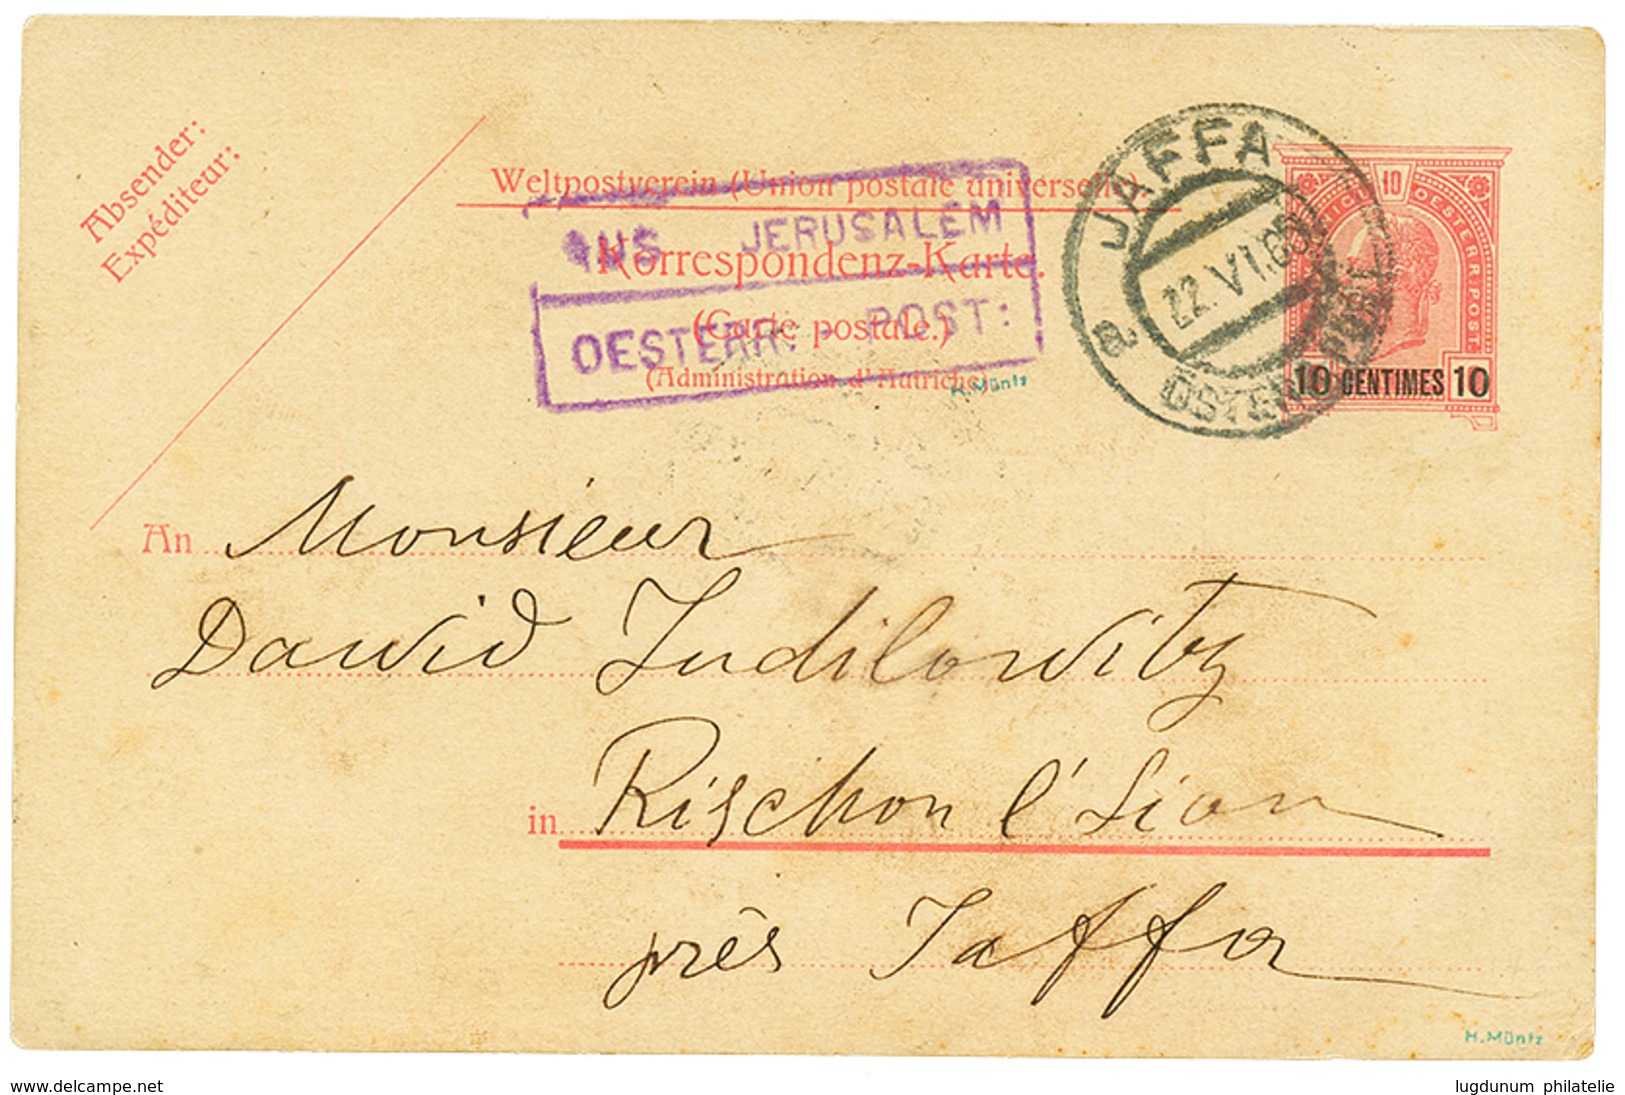 Absender:
Expéditeur:
Weltpostverein (Union postale universelle)
Korrespondenz-Karte.
(Carte postale.)
(Administration d'Autriche)
AUS JERUSALEM
OESTERR: - POST:
H.Müntz
JAFFA
22.VI.05
a.
10
OESTERR.POST
10 CENTIMES 10
An Monsieur
Dawid Judilowitz
in Rischon l'Sion
près Jaffa
H.Müntz
delcampe.net
lugdunum philatelie